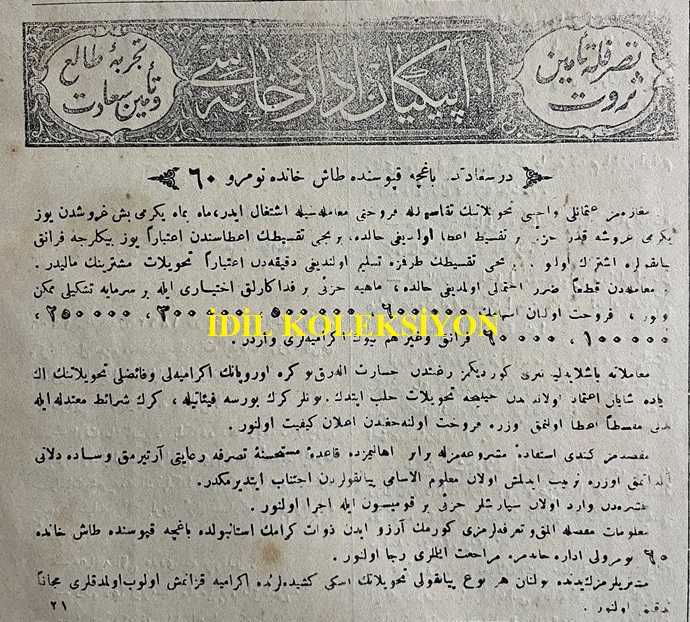 تصرفله تأمین ثروت
اپیکیان ادارەخانەسی
تجربۀ طالع و تأمین سعادت
در سعادتده باغچه قپوسنده طاش خانده نومرو ٦٠
مغازەمز عثمانلی واجنبی تحویلاتنك تقاسیطله فروختی معاملەسیله اشتغال ایدر، ماه بماه یكرمی بش غروشدن یوز
یكرمی غروشه قدر جزئی بر تقسیط اعطا اولدیغی حالده، برنجی تقسیطك اعطاسندن اعتباراً یوز بیكلرجه فرانق
پیانقولره اشتراك اولو تقسیطك طرفمزه تسلیم اولندیغی دقیقەدن اعتباراً تحویلات مشترینك مالیدر .
معاملەدن قطعیاً ضرر احتمالی اولمدیغی حالده، ماهیه جزئی بر فداكارلق اختیاری ایله بر سرمایه تشكیلی ممكن
اولور ، فروخت اولنان ٦٠٠٠٠٠ ٥٠٠٠٠٠ ٣٠٠٠٠٠ ، ٢٥٠٠٠٠ ،
١٠٠٠٠٠ ، ٩٠٠٠٠ فرانق وغیر هم بیوك اكرامیەلری واردر .
İDİL KOLEKSİYON
معاملاته باشلایەلی كوردیكمز رغبتدن جسارت الەرق بو كره اوروپانك اكرامیەلی وفائضلی تحویلاتنك اك
زیاده شایان اعتماد اولانلرندن تحویلات جلب ایتدك. بونلر كرك بورسه فیئاتیله ، كرك شرائط معتدله ایله
مقسطاً اعطا اولنمق اوزره فروخت اولنەجغندن اعلان كیفیت اولنور .
مقصدمز كندی استفادۀ مشروعەمزله برابر اهالیمزده قاعدۀ مستحسنۀ تصرفه رعایتی آرتیرمق وساده دلانی
آلداتمق اوزره ترتیب ایدلمش اولان معلوم الاسامی پیانقولردن اجتناب ایتدیرمكدر.
طشرەدن وارد اولان سپارشلر جزئی بر قومیسیون ایله اجرا اولنور .
معلومات مفصله المق وتعرفەلرمزی كورمك آرزو ایدن ذوات كرامك استانبولده باغچه قپوسنده طاش خانده
٦٠ نومرولی اداره خانەمزه مراجعت ایلملری رجا اولنور .
مشتریلرمزك یدنده بولنان هر نوع پیانقولی تحویلاتك اسكی كشیدەلرنده اكرامیه قزانمش اولوب اولمدقلری مجاناً
تدقیق اولنور .
٢١